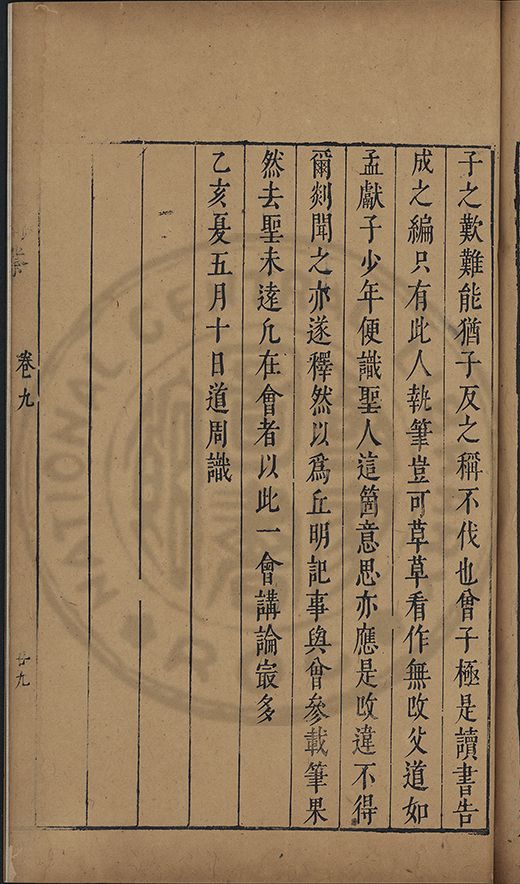 子之歎難能猶子反之稱不伐也曾子極是讀書告
成之編只有此人執筆豈可草草看作無改父道如
孟獻子少年便識聖人這箇意思亦應是改違不得
爾剡聞之亦遂釋然以爲丘明記事與曾參載筆果
然去聖未遠凡在會者以此一會講論㝡多
乙亥夏五月十日道周識
卷九
廿九